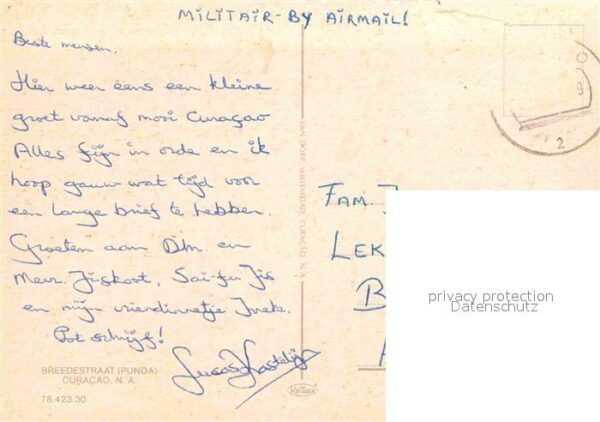 MILITAIR - BY AIRMAIL!
Beste mensen,
Hier weer eens een kleine
groet vanaf mooi Curaçao
Alles fijn in orde en ik
hoop gauw wat tijd voor
een lange brief te hebben.
Groeten aan Dhr. en
Mevr. Jiskoot,
en mijn vriendinnetje Ineke.
Tot schrijfs!
BREEDESTRAAT (PUNDA)
CURAÇAO, N. A.
78.423.30
VAN DORP WILLEMSTAD CURAÇAO, N. A.
FAM.
LEK
B
privacy protection
Datenschutz